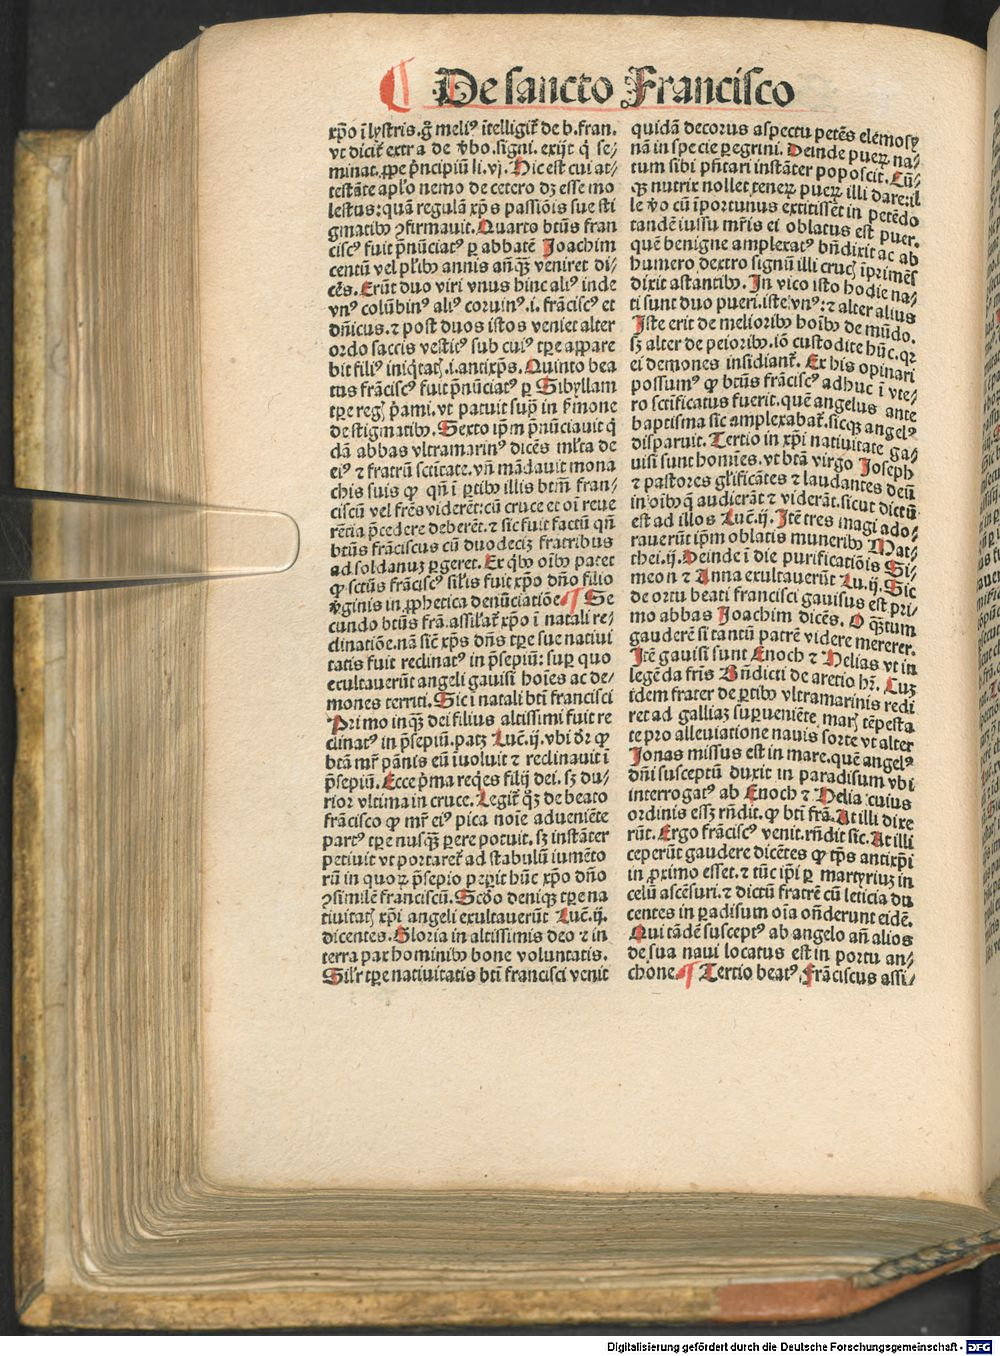 De sancto Francisco
xp̄o ī lystris. g̊ meliꝰ ītelligit̄ de b. fran.
vt dicit̄ extra de v̄bo. signi. exijt q̇ se⸗
minat. ꝓpe pͥncipiū li. vj. Hic est cui at⸗
testāte apl̄o nemo de cetero dꝫ esse mo
lestus: quā regulā xp̄s passiōis sue sti
gmatibꝰ ꝯfirmauit. Quarto btūs fran
ciscꝰ fuit p̄nūciatꝰ ꝑ abbatē Joachim
centū vel pl̄ibꝰ annis anq̄ꝫ veniret di⸗
cēs. Erūt duo viri vnus hinc aliꝰ inde
vnꝰ colūbinꝰ aliꝰ coruinꝰ. i. frāciscꝰ et
dn̄icus. ⁊ post duos istos veniet alter
ordo saccis vestitꝰ sub cuiꝰ tꝑe appare
bit filiꝰ iniq̇tatꝭ. i. antixp̄s. Quinto bea
tus frāciscꝰ fuit p̄nūciatꝰ ꝑ Sibyllam
tꝑe regꝭ pͥami. vt patuit sup̄ in ẜmone
de stigmatibꝰ. Sexto ip̄m p̄nūciauit q̇
dā abbas vltramarinꝰ dicēs ml̄ta de
eiꝰ ⁊ fratrū sctītate. vn̄ mādauit mona
chis suis ꝙ qn̄ ī ꝑtibꝰ illis btm̄ fran⸗
ciscū vel frēs viderēt: cū cruce et oī reue
rētia ꝓcedere deberēt. ⁊ sic fuit factū qn̄
btūs frāciscus cū duodecꝫ fratribus
ad soldanuꝫ ꝑgeret. Ex q̇bꝰ oībꝰ patet
ꝙ sctūs frāciscꝰ sil̄is fuit xp̄o dn̄o filio
v̄ginis in ꝓphetica denūciatiōe. ¶ Se
cundo btūs frā. assilat̄ xp̄o ī natali re⸗
clinatiōe. nā sic̄ xp̄s dn̄s tꝑe sue natiui
tatis fuit reclinatꝰ in p̄sepiū: suꝑ quo
exultauerūt angeli gauisi hoīes ac de⸗
mones territi. Sic ī natali btī francisci
Primo inqꝫ dei filius altissimi fuit re
clinatꝰ in p̄sepiū. patꝫ Luc̄. ij. vbi dr̄ ꝙ
btā mr̄ pānis eū īuoluit ⁊ reclinauit ī
p̄sepiū. Ecce pͥma req̇es filij dei. sꝫ du⸗
rior vltima in cruce. Legit̄ qꝫ de beato
frācisco ꝙ mr̄ eiꝰ pica noīe adueniēte
partꝰ tꝑe nusq̄ꝫ ꝑere potuit. sꝫ instāter
petiuit vt portaret̄ ad stabulū iumēto
rū in quoꝝ p̄sepio peꝑit hūc xp̄o dn̄o
ꝯsimilē franciscū. Scd̄o deniqꝫ tꝑe na
tiuitatꝭ xp̄i angeli exultauerūt Luc̄. ij.
dicentes. Gloria in altissimis deo ⁊ in
terra pax hominibꝰ bone voluntatis.
Sil̄r tꝑe natiuitatis btī francisci venit
quidā decorus aspectu petēs elemosy
nā in specie peregrini. Deinde pueꝝ na⸗
tum sibi p̄ntari instāter poposcit. Cū⸗
qꝫ nutrix nollet teneꝝ pueꝝ illi dare: il
le v̄o cū īportunus extitisset in petēdo
tandē iussu mr̄is ei oblatus est puer.
quē benigne amplexatꝰ bn̄dixit ac ab
humero dextro signū illi crucꝭ īprimēs
dixit astantibꝰ. In vico isto hodie na⸗
ti sunt duo pueri. iste vnꝰ: ⁊ alter alius
Iste erit de melioribꝰ hoībꝰ de mūdo.
sꝫ alter de peioribꝰ. iō custodite hūc. qꝛ
ei demones insidiant̄. Ex his opinari
possumꝰ ꝙ btūs frāciscꝰ adhuc ī vte⸗
ro sctīficatus fuerit. quē angelus ante
baptisma sic amplexabat̄. sicqꝫ angelꝰ
disparuit. Tertio in xp̄i natiuitate ga⸗
uisi sunt homīes. vt btā virgo Joseph
⁊ pastores gl̄ificātes ⁊ laudantes deū
in oībꝰ q̄ audierāt ⁊ viderāt. sicut dictū
est ad illos Luc̄. ij. Itē tres magi ado⸗
rauerūt ip̄m oblatis muneribꝰ Mat⸗
thei. ij. Deinde ī die purificatiōis Si⸗
meon ⁊ Anna exultauerūt Lu. ij. Sic
de ortu beati francisci gauisus est pri⸗
mo abbas Joachim dicēs. O q̄ꝫtum
gauderē si tantū patrē videre mererer.
Itē gauisi sunt Enoch ⁊ Helias vt in
legēda fr̄is Bn̄dicti de aretio hr̄. Cuꝫ
idem frater de ꝑtibꝰ vltramarinis redi
ret ad galliaꝫ suꝑueniēte marꝭ tēpesta
te pro alleuiatione nauis sorte vt alter
Jonas missus est in mare. quē angelꝰ
dn̄i susceptū duxit in paradisum vbi
interrogatꝰ ab Enoch ⁊ Helia cuius
ordinis essꝫ rn̄dit. ꝙ btī frā. At illi dixe
rūt. Ergo frāciscꝰ venit. rn̄dit sic. At illi
ceperūt gaudere dicētes ꝙ tp̄s antixp̄i
in ꝓximo esset. ⁊ tūc ip̄i ꝑ martyriuꝫ in
celū ascēsuri. ⁊ dictū fratrē cū leticia du
centes in ꝑadisum oīa on̄derunt eidē.
Qui tādē susceptꝰ ab angelo an̄ alios
de sua naui locatus est in portu an⸗
chone. ¶ Tertio beatꝰ Frāciscus assi⸗
Digitalisierung gefördert durch die Deutsche Forschungsgemeinschaft - DFG